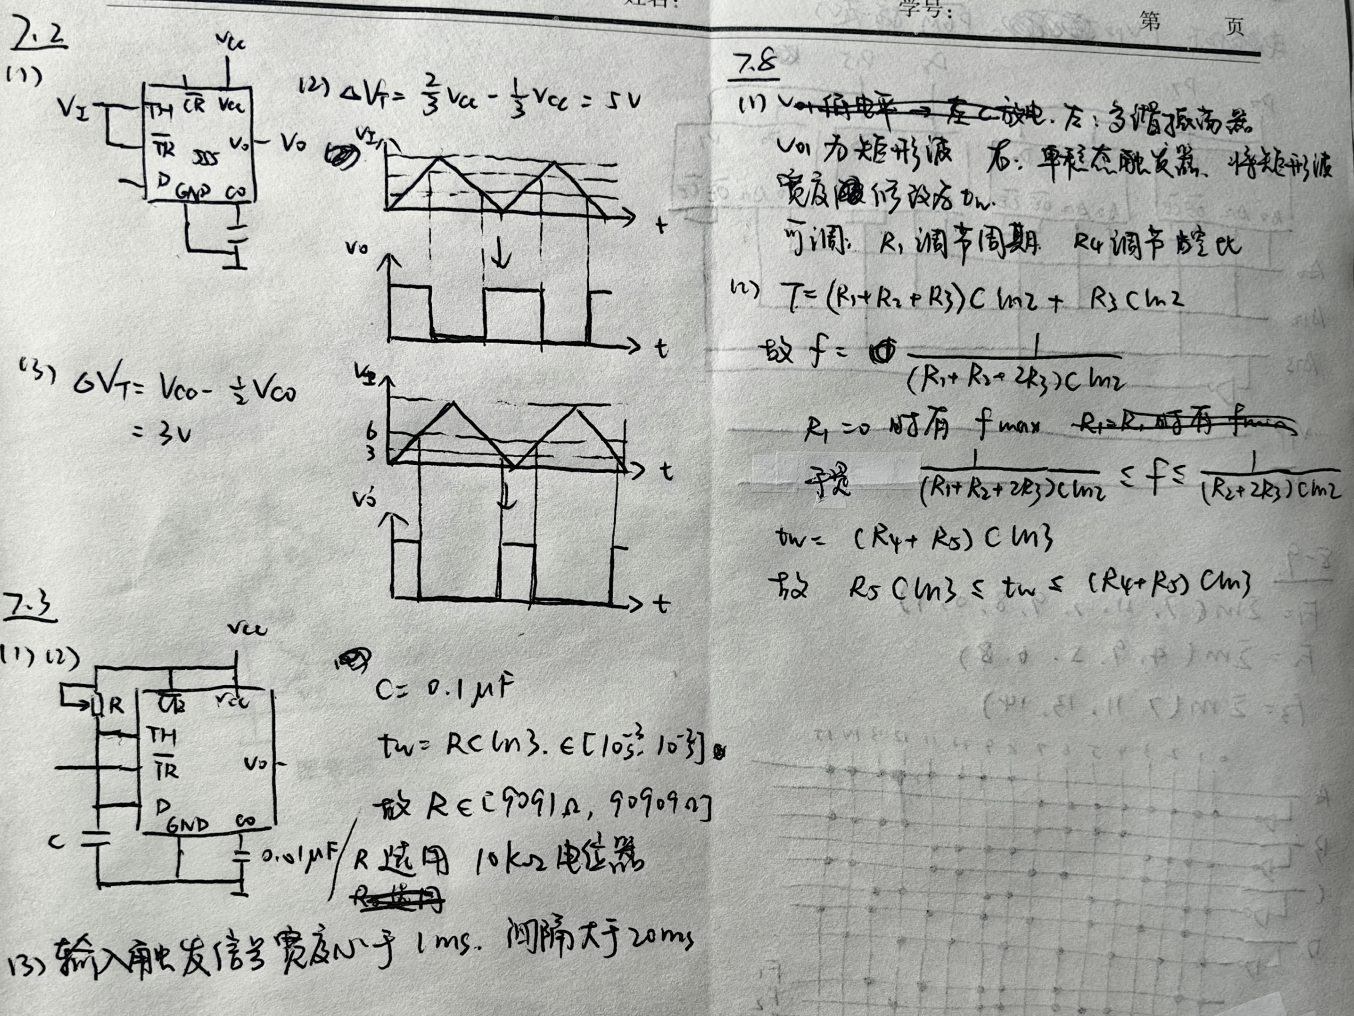 学号:
第 页
7.2
(1)
Vcc
VI
TH CR Vcc
TR 555 Vo Vo
D GND CO
(2) ΔVT = 2/3 Vcc - 1/3 Vcc = 5V
VI
t
Vo
t
(3) ΔVT = Vco - 1/2 Vco
= 3V
VI
6
3
t
Vo
t
7.3
(1)(2)
Vcc
R CR Vcc
TH
TR Vo
D
GND CO
C 0.01μF
C = 0.1μF
tw = RC ln3. ∈ [10⁻³
故 R ∈ [9091Ω, 90909Ω]
R选用 10kΩ 电位器
(3) 输入触发信号宽度小于 1ms. 间隔大于20ms
7.8
(1) 左: 多谐振荡器
Vo1 为矩形波 右: 单稳态触发器. 将矩形波
宽度修改为 tw.
可调: R1 调节周期. R4 调节占空比
(2) T = (R1+R2+R3)C ln2 + R3 C ln2
故 f = 1/((R1+R2+2R3)C ln2)
R1 = 0 时有 fmax
于是 1/((R1+R2+2R3)C ln2) ≤ f ≤ 1/((R2+2R3)C ln2)
tw = (R4+R5) C ln3
故 R5 C ln3 ≤ tw ≤ (R4+R5) C ln3